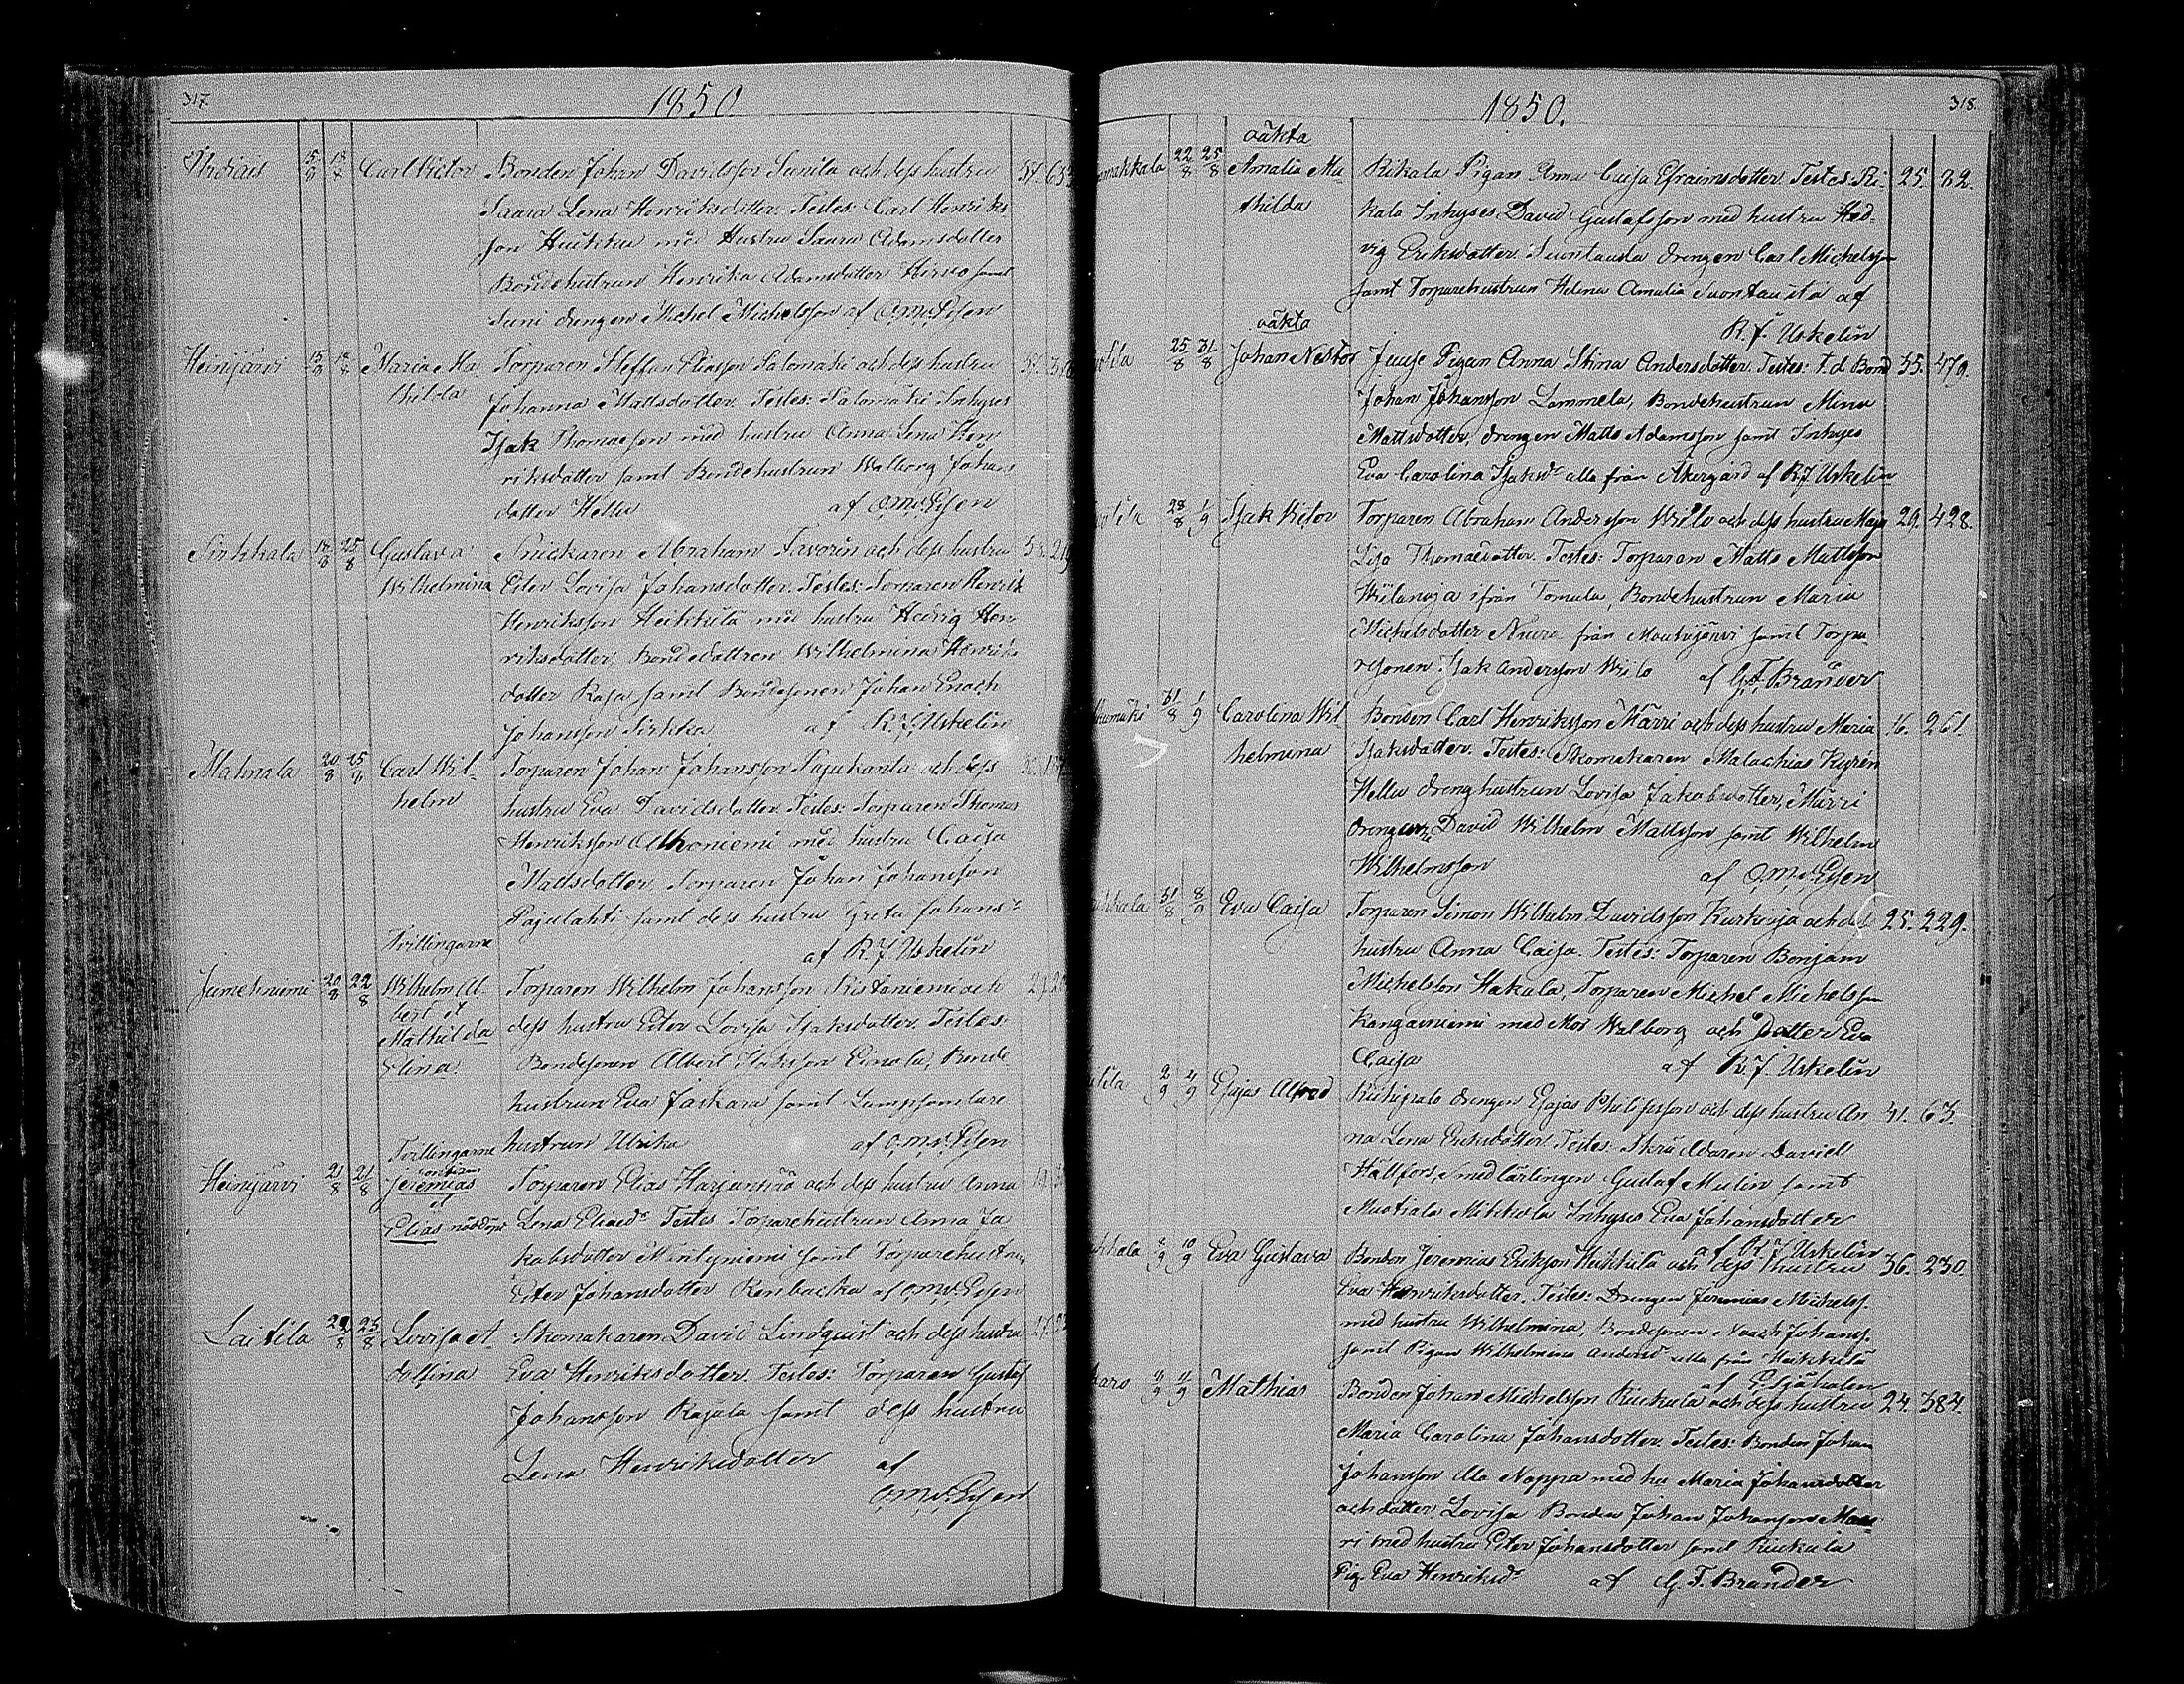 317.
1850
15/8 18/8 Carl Victor Bonden Johan Davidsson Sunila och dess hustru 37.
Saara Lena Henriksdotter. Testes: Carl Henriks
son Heikku med Hustru Saara Adamsdotter
Bondehustrun Henrika Adamsdotter Hirvo samt
Suni drengen Michel Michelsson af O.M.v.Essen
Heinijärvi 15/8 18/8 Maria Ma Torparen Steffan Eliasson Salomäki och dess hustru
thilda Johanna Mattsdotter. Testes: Salomäki Inhyses
Isak Thomasson med hustru Anna Lena Hen
riksdotter samt Bondehustrun Walborg Johans
dotter Hellu af O.M.v.Essen
Sirkkala 18/8 25/8 Gustava Snickaren Abraham Savorin och dess hustru
Wilhelmina Ester Lovisa Johansdotter. Testes: Torparen Henrik
Henriksson Heikkilä med hustru Hedvig Hen
riksdotter, Bondedottren Wilhelmina Henriks
dotter Rasa samt Bondesonen Johan Enoch
Johansson Sirkka af R.J.Uskelin
Mahnala 20/8 25/8 Carl Wil- Torparen Johan Johansson Pajukanta och dess
helm hustru Eva Davidsdotter. Testes: Torparen Thomas
Henriksson Alhoniemi med hustru Caisa
Mattsdotter, Torparen Johan Johansson
Pajulahti samt dess hustru Greta Johans
Tvillingarne af R.J.Uskelin
Jumesniemi 20/8 22/8 Wilhelm Al- Torparen Wilhelm Johansson Ristaniemi och
bert et dess hustru Ester Lovisa Isaksdotter. Testes:
Mathilda Bondesonen Albert Isaksson Einola, Bonde
Elina. hustrun Eva Jaskara samt Lumpsamlare
Tvillingarne hustrun Ulrika af O.M.v.Essen
Heinijärvi 21/8 21/8 Jeremias Torparen Elias Harjunpää och dess hustru Anna
et
Elias nöddöpt Lena Eliaed. Testes Torparehustrun Anna Ja
kobsdotter Mäntyniemi samt Torparehustrun
Ester Johansdotter Renbacka af O.M.v.Essen
Laitila 22/8 25/8 Lovisa A- Skomakaren David Lindquist och dess hustru
dolfina Eva Henriksdotter. Testes: Torparen Gustaf
Johansson Rajala samt dess hustru
Lena Henriksdotter af
O.M.v.Essen
318
1850.
oäkta
22/8 25/8 Amalia Ma- Rikala Pigan Anna Caisa Efraimsdotter. Testes: Ri- 25. 82.
thilda kala Inhyses David Gustafsson med hustru Hed-
vig Eriksdotter. Suontausta drengen Carl Michelsson
samt Torparehustrun Helena Amalia Suontausta af
oäkta R.J. Uskelin
25/8 31/8 Johan Nestor Juuse Pigan Anna Stina Andersdotter. Testes: f.d. Bond 35. 479.
Johan Johansson Lammela, Bondehustrun Mina
Mattsdotter, drengen Matts Adamsson samt Inhyses
Eva Carolina Isaksd. alla från Åkergård af R.J.Uskelin
28/8 1/9 Isak Victor Torparen Abraham Andersson Wilo och dess hustru Maja 29. 428.
Lisa Thomasdotter. Testes: Torparen Matts Mattsson
Wiilanoja ifrån Tomula, Bondehustrun Maria
Michelsdotter från Mouhijärvi samt Torpa
resonen Isak Andersson Wilo af G.F.Brander
31/8 1/9 Carolina Wil Bonden Carl Henriksson Märri och dess hustru Maria 16. 261.
helmina Isaksdotter. Testes: Skomakaren Malachias Kyrén
Hellu drenghustrun Lovisa Jakobsdotter, Märri
drengarne David Wilhelm Mattsson samt Wilhelm
Wilhelmsson af O.M.v.Essen
31/8 8/9 Eva Caisa Torparen Simon Wilhelm Davidsson Kurkioja och dess 25. 229.
hustru Anna Caisa. Testes: Torparen Benjam
Michelsson Hakala, Torparen Michel Michelsson
Kangasniemi med Mor Walborg och Dotter Eva
Caisa af R.J. Uskelin
2/9 4/9 Esajas Alfred drengen Esajas Philipsson och dess hustru An- 41. 63.
na Lena Eriksdotter. Testes: Skräddaren David
Hällfors, smedlärlingen Gustaf Melin samt
Muotiala Mikkola Inhyses Eva Johansdotter
af R.J.Uskelin
8/9 10/9 Eva Gustava Bonden Jeremias Eriksson Heikkilä och dess hustru 36. 230.
Eva Henriksdotter. Testes: Drengen Jeremias Michelss.
med hustru Wilhelmina, Bondesonen Noach Johanss.
samt Pigan Wilhelmina Andersd. alla från Heikkilä
9 9 Mathias Bonden Johan Michelsson Kuckula och dess hustru 24. 384.
Maria Carolina Johansdotter. Testes: Bonden Johan
Johansson Ala Noppa med hu Maria Johansdotter
och dotter Lovisa Bonden Johan Johansson
ri med hustru Ester Johansdotter samt Kuckula
Pig. Eva Henriksd. af G.F.Brander